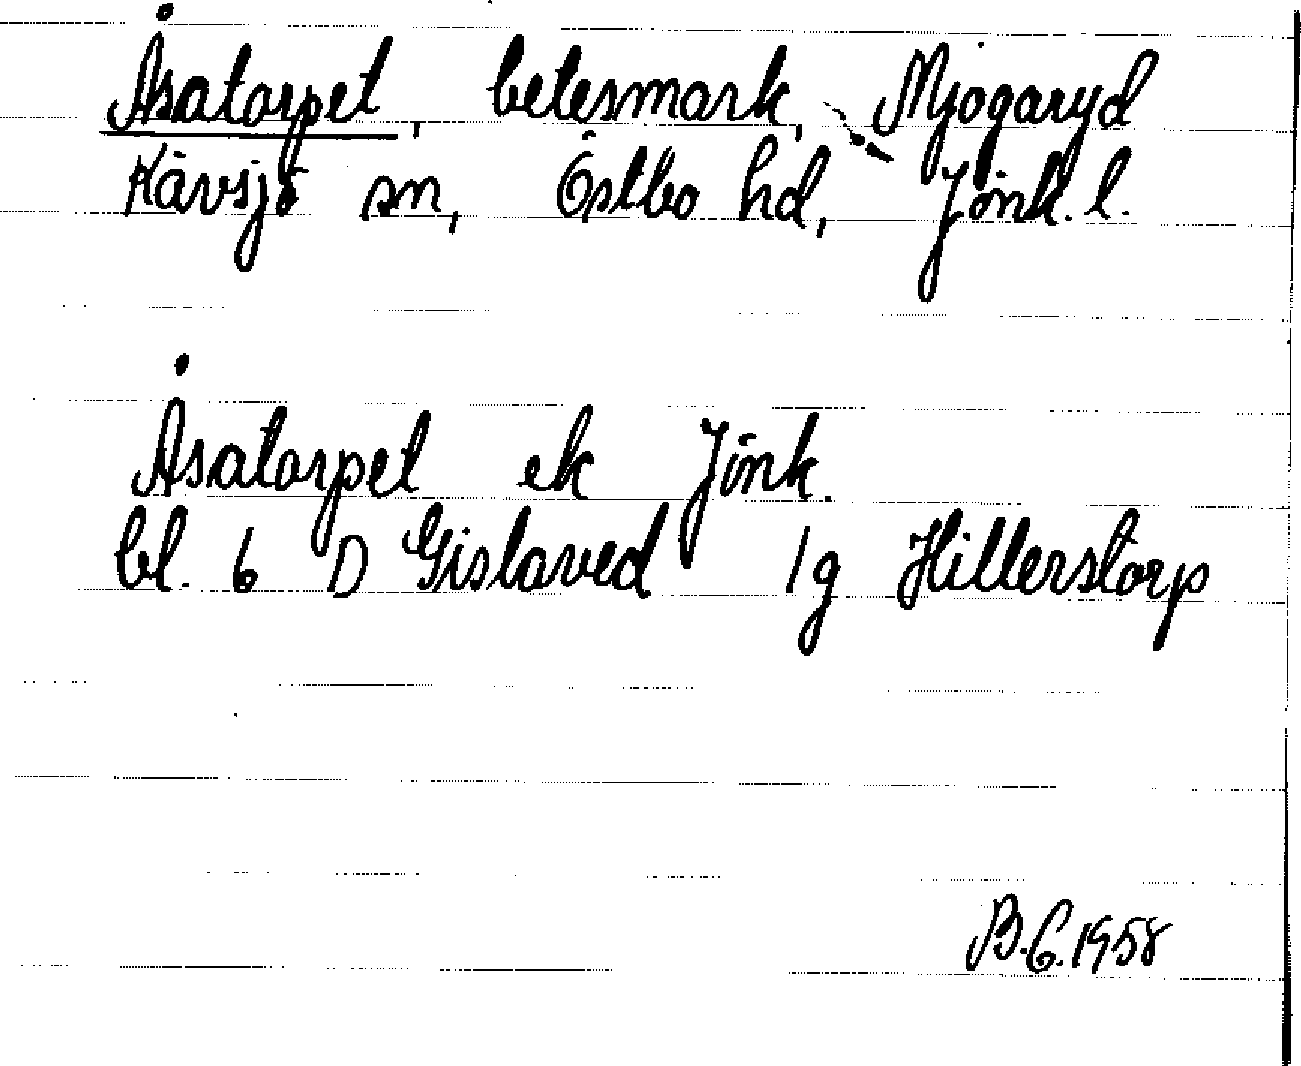 Åsatorpet, betesmark, Mjogaryd
Kävsjö sn, Östbo hd, Jönk. l.
Åsatorpet ek Jönk.
bl. 6 D Gislaved 1g Hillerstorp
B.G. 1958